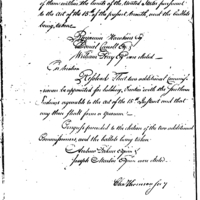 of them within the limits of the United States pursuant
to the Act of the 15th of the present Month, and the ballots
being taken
Benjamin Hawkins Esqr
Daniel Carroll Esqr &
William Perry Esqr were elected.
On motion
Resolved That two additional Commissi-
oners be appointed for holding Treaties with the Southern
Indians agreeable to the Act of the 15th Instant and that
any three shall form a quorum.
Congress proceeded to the election of the two additional
Commissioners, and the ballots being taken
Andrew Pickens Esquire &
Joseph Martin Esquire were elected.
Chas Thomson Secy